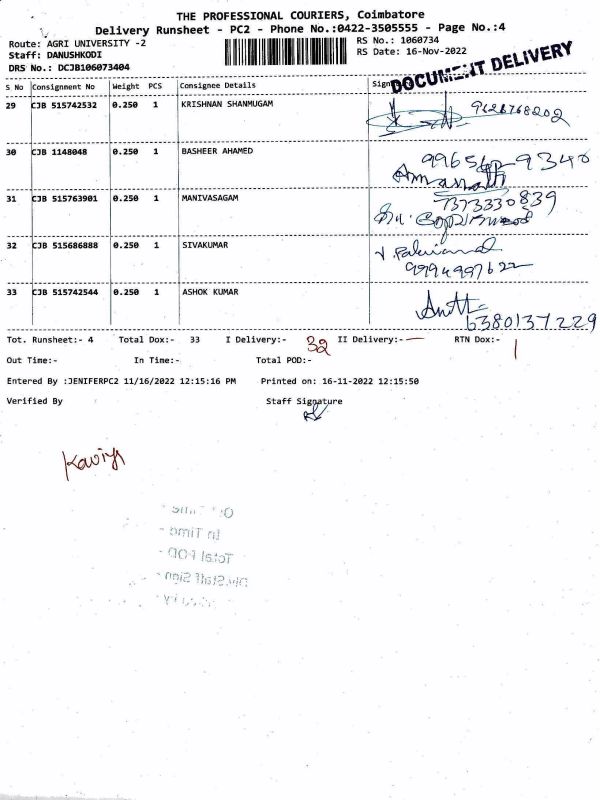 THE PROFESSIONAL COURIERS, Coimbatore
Delivery Runsheet - PC2 - Phone No.:0422-3505555 - Page No.:4
Route: AGRI UNIVERSITY -2
RS No.: 1060734
Staff: DANUSHKODI
RS Date: 16-Nov-2022
DRS No.: DCJB106073404
DOCUMENT DELIVERY
S No Consignment No Weight PCS Consignee Details
29 CJB 515742532 0.250 1 KRISHNAN SHANMUGAM
30 CJB 1148048 0.250 1 BASHEER AHAMED
31 CJB 515763901 0.250 1 MANIVASAGAM 7373330839
32 CJB 515686888 0.250 1 SIVAKUMAR
9994997622
33 CJB 515742544 0.250 1 ASHOK KUMAR
6380137229
Tot. Runsheet:- 4 Total Dox:- 33 I Delivery:- 32 II Delivery:- — RTN Dox:- 1
Out Time:- In Time:- Total POD:-
Entered By :JENIFERPC2 11/16/2022 12:15:16 PM Printed on: 16-11-2022 12:15:50
Verified By Staff Signature
Kaviya
In Time -
Total POD -